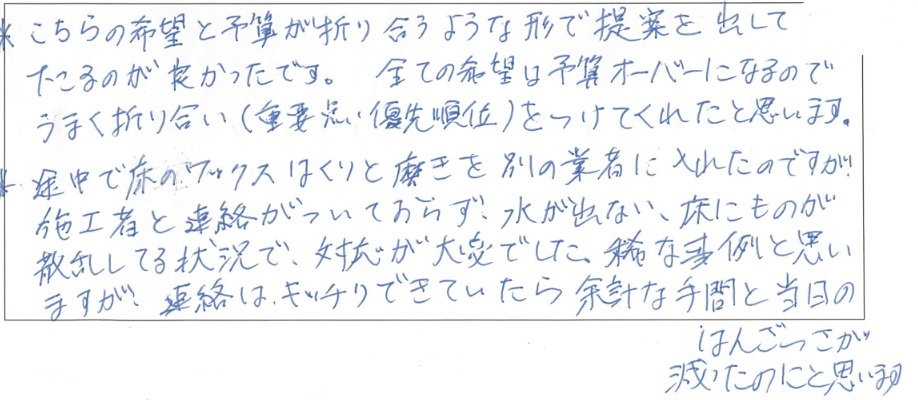 * こちらの希望と予算が折り合うような形で提案を出して
たこるのが良かったです。 全ての希望は予算オーバーになるので
うまく折り合い(重要点い優先順位)をつけてくれたと思います。
* 途中で床のワックスはくりと磨きを別の業者に入れたのですが
施工者と連絡がついておらず、水が出ない、床にものが
散乱してる状況で、対応が大変でした。稀な事例と思い
ますが、連絡は、キッチリできていたら余計な手間と当日の
はんざつさが
減ったのにと思います